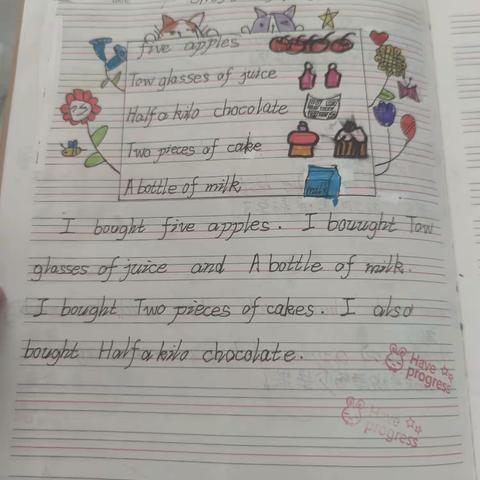 five apples
Tow glasses of juice
Half a kilo chocolate
Two pieces of cake
A bottle of milk
milk
I bought five apples. I bouught Tow
glasses of juice and A bottle of milk.
I bought Two pieces of cakes. I also
bought Half a kilo chocolate.
Have
progress
Have
progress